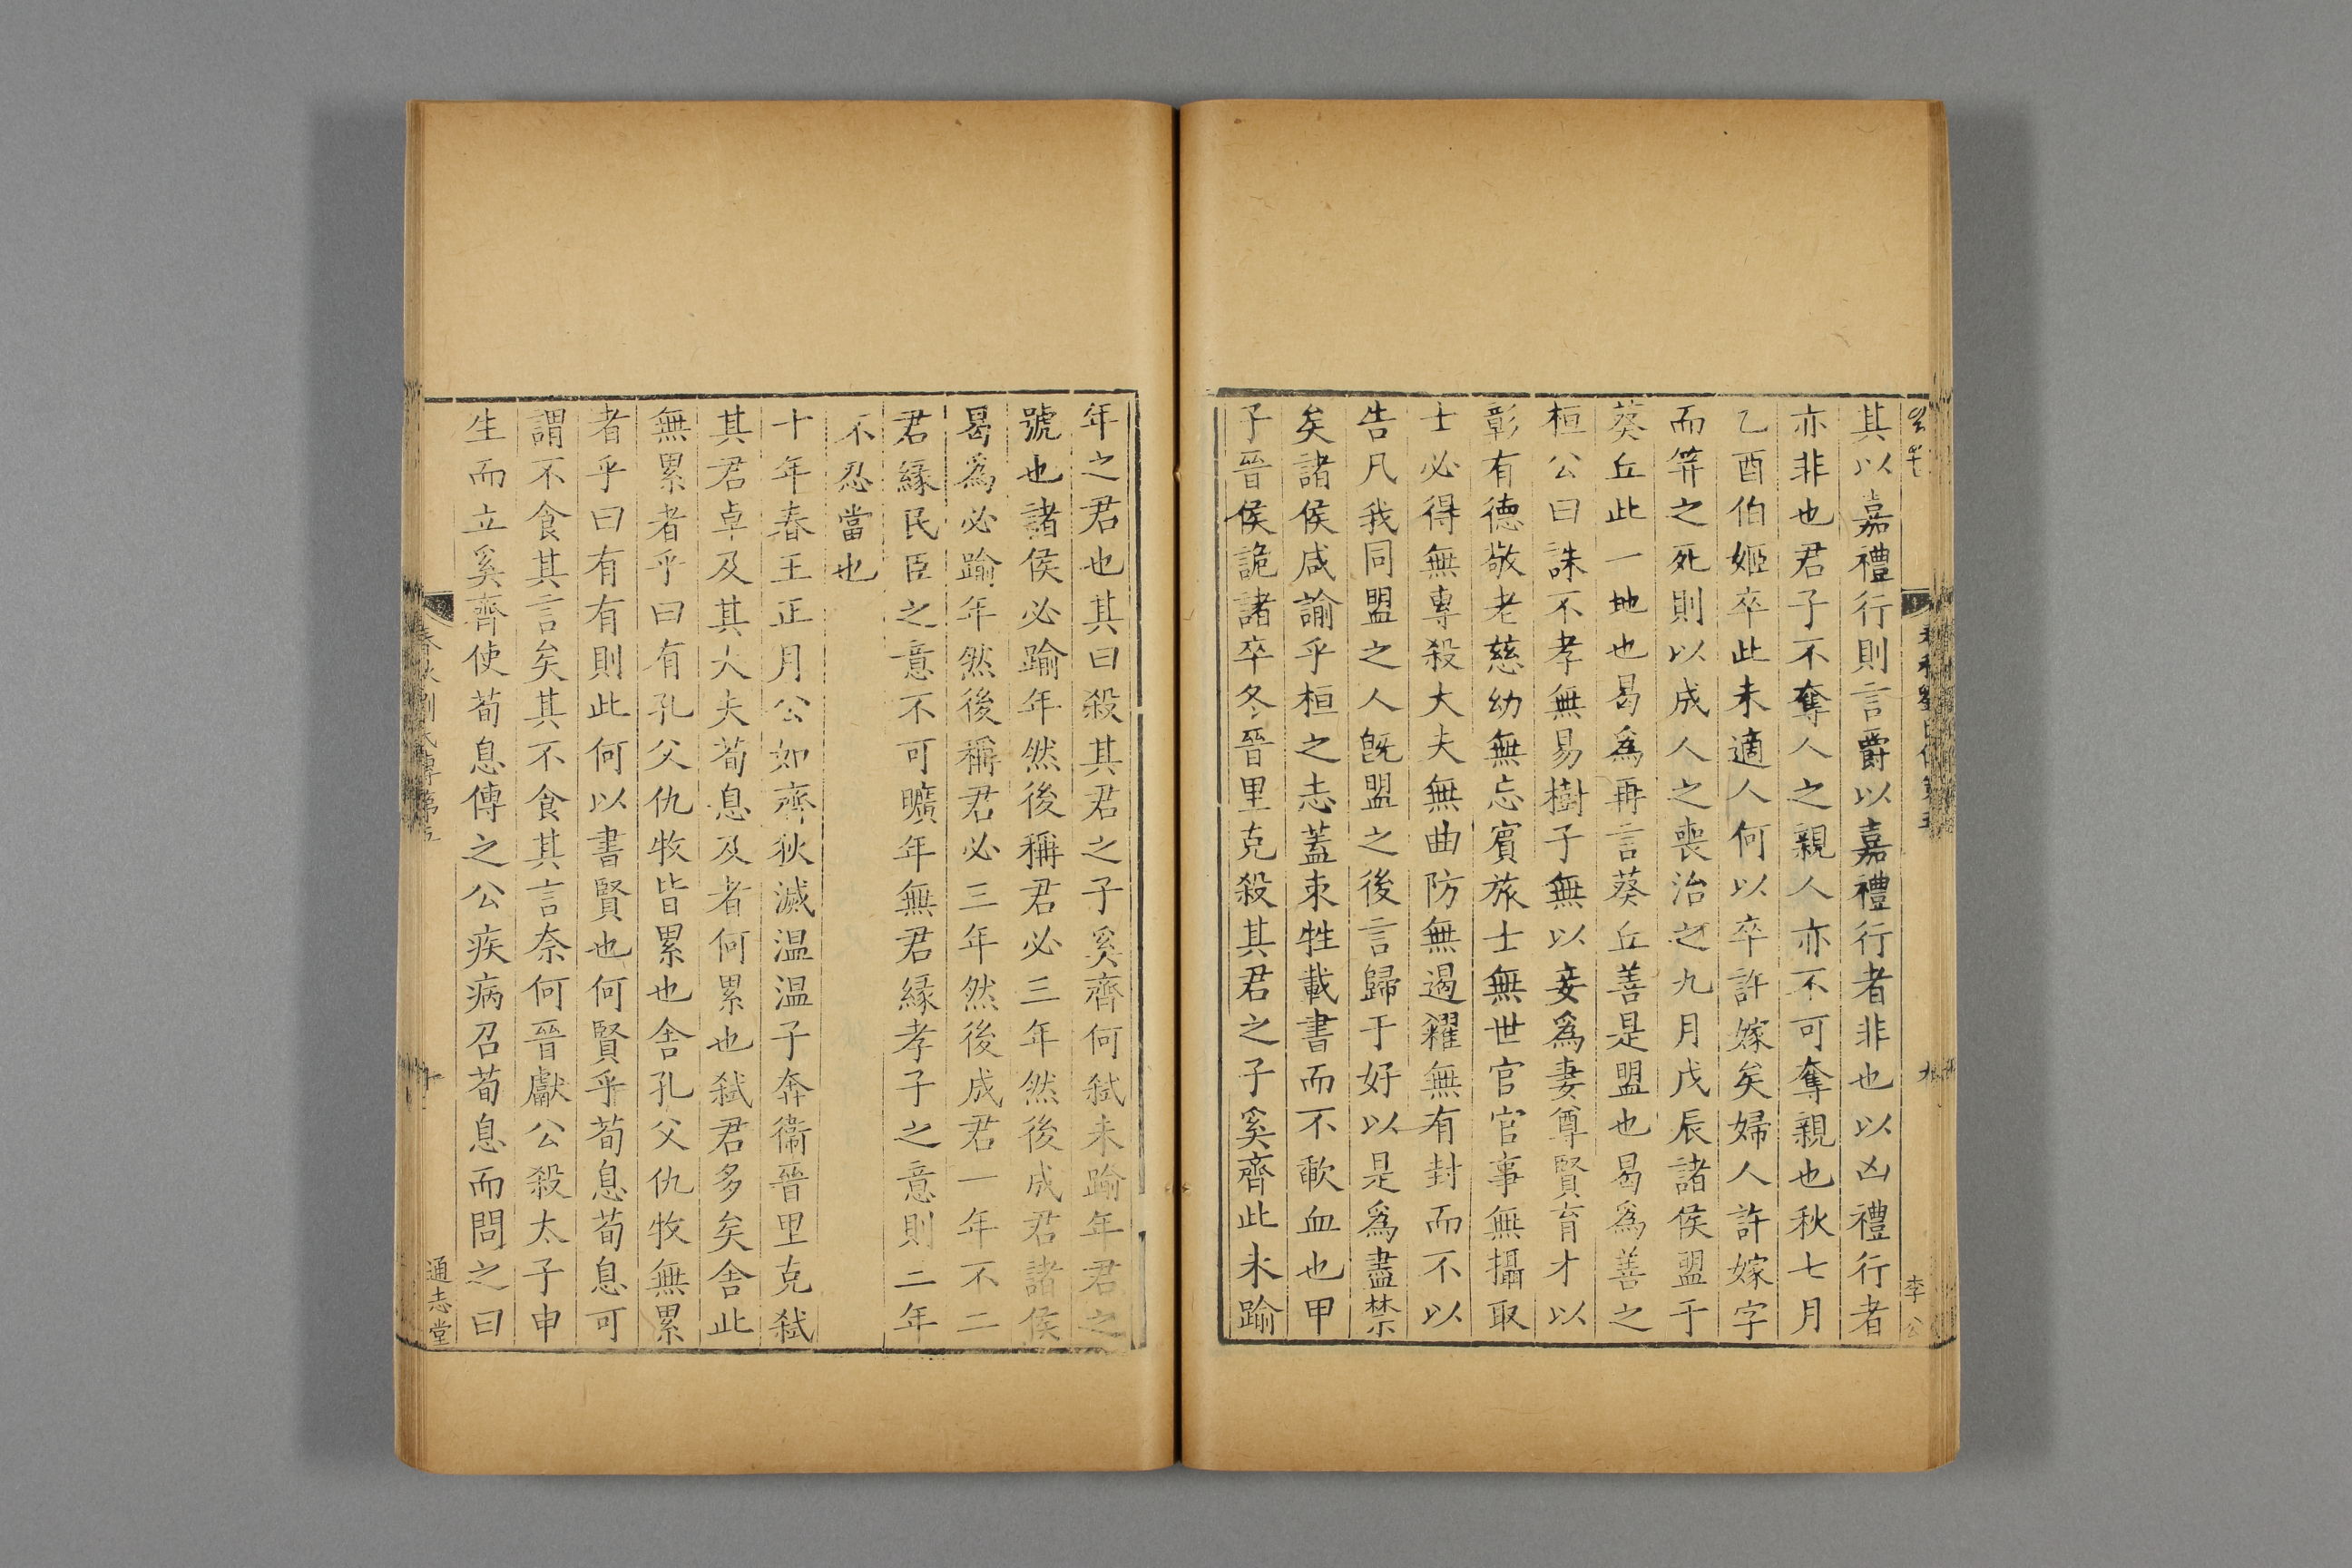 其以嘉禮行則言爵以嘉禮行者非也以凶禮行者
亦非也君子不奪人之親人亦不可奪親也秋七月
乙酉伯姬卒此未適人何以卒許嫁矣婦人許嫁字
而筓之死則以成人之喪治之九月戊辰諸侯盟于
葵丘此一地也曷為再言葵丘善是盟也曷為善之
桓公曰誅不孝無易樹子無以妾爲妻尊賢育才以
彰有德敬老慈幼無忘賓旅士無世官官事無攝取
士必得無專殺大夫無曲防無遏糴無有封而不以
告凡我同盟之人旣盟之後言歸于好以是爲盡禁
矣諸侯咸諭乎桓之志蓋束牲載書而不歃血也甲
子晉侯詭諸卒冬晉里克殺其君之子奚齊此未踰
年之君也其曰殺其君之子奚齊何弑未踰年君之
號也諸侯必踰年然後稱君必三年然後成君諸侯
曷爲必踰年然後稱君必三年然後成君一年不二
君緣民臣之意不可曠年無君緣孝子之意則二年
不忍當也
十年春王正月公如齊狄滅温温子奔衞晉里克弑
其君卓及其大夫荀息及者何累也弑君多矣舍此
無累者乎曰有孔父仇牧皆累也舍孔父仇牧無累
者乎曰有有則此何以書賢也何賢乎荀息荀息可
謂不食其言矣其不食其言奈何晉獻公殺太子申
生而立奚齊使荀息傅之公疾病召荀息而問之曰
春秋劉氏傳第五
十
通志堂
九
李公